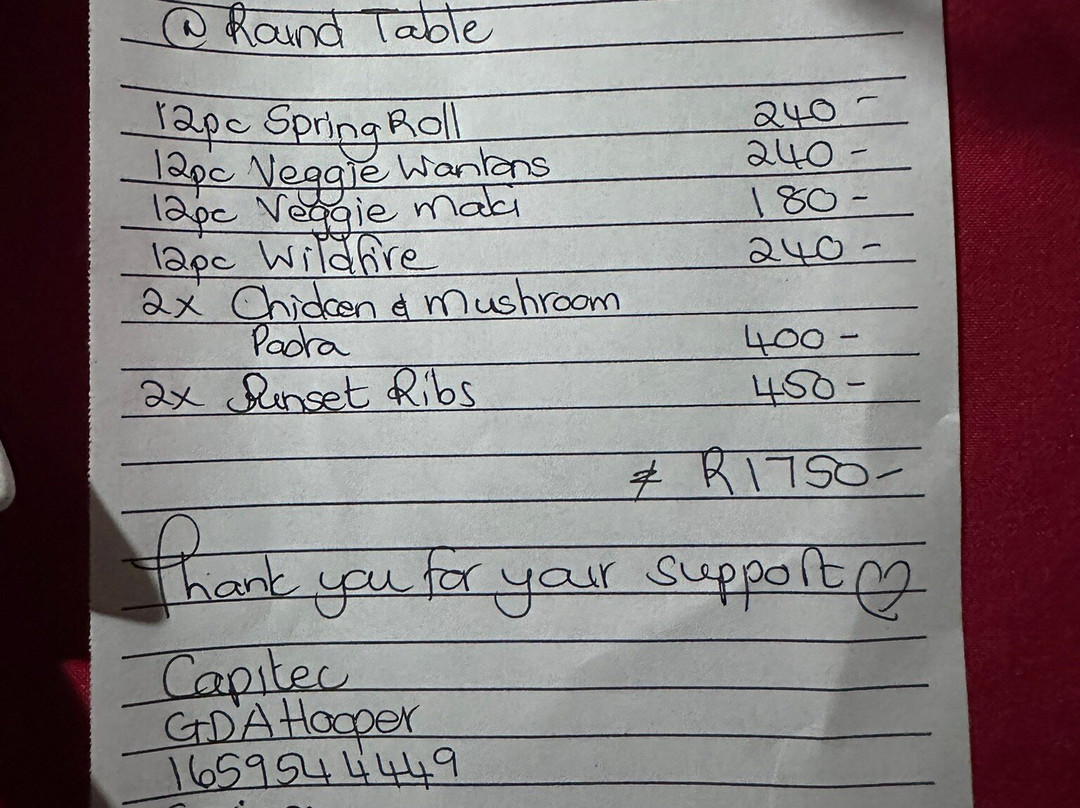 @ Round Table
12pc Spring Roll 240-
12pc Veggie Wantons 240-
12pc Veggie Maki 180-
12pc Wildfire 240-
2x Chicken & Mushroom
Pasta 400-
2x Sunset Ribs 450-
≠ R1750-
Thank you for your support ♡
Capitec
GDA Hooper
1659544449